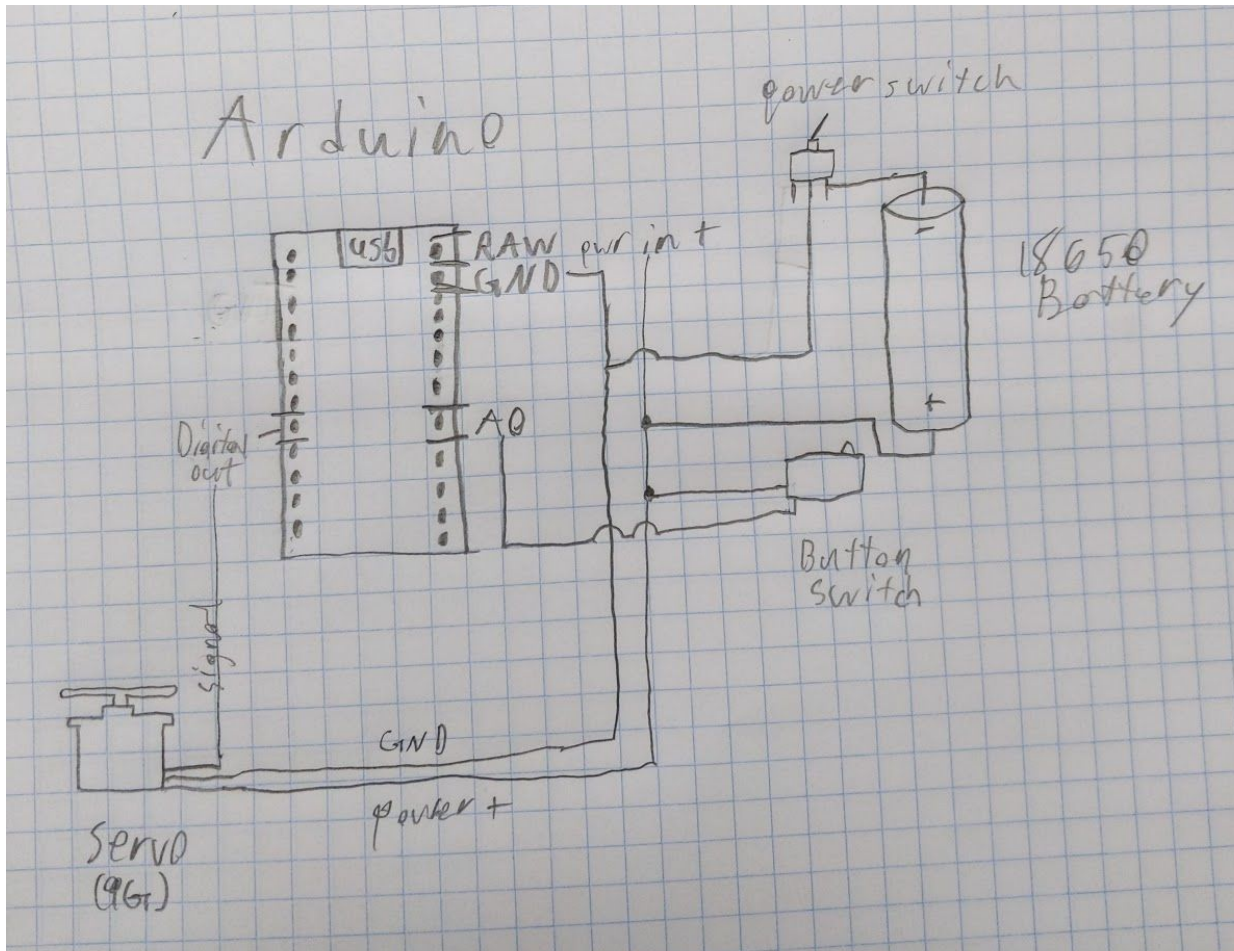 power switch
Arduino
usb
RAW pwr in +
GND
-
18650
Battery
+
A0
Digital
out
Button
switch
signal
GND
power +
Servo
(9G)